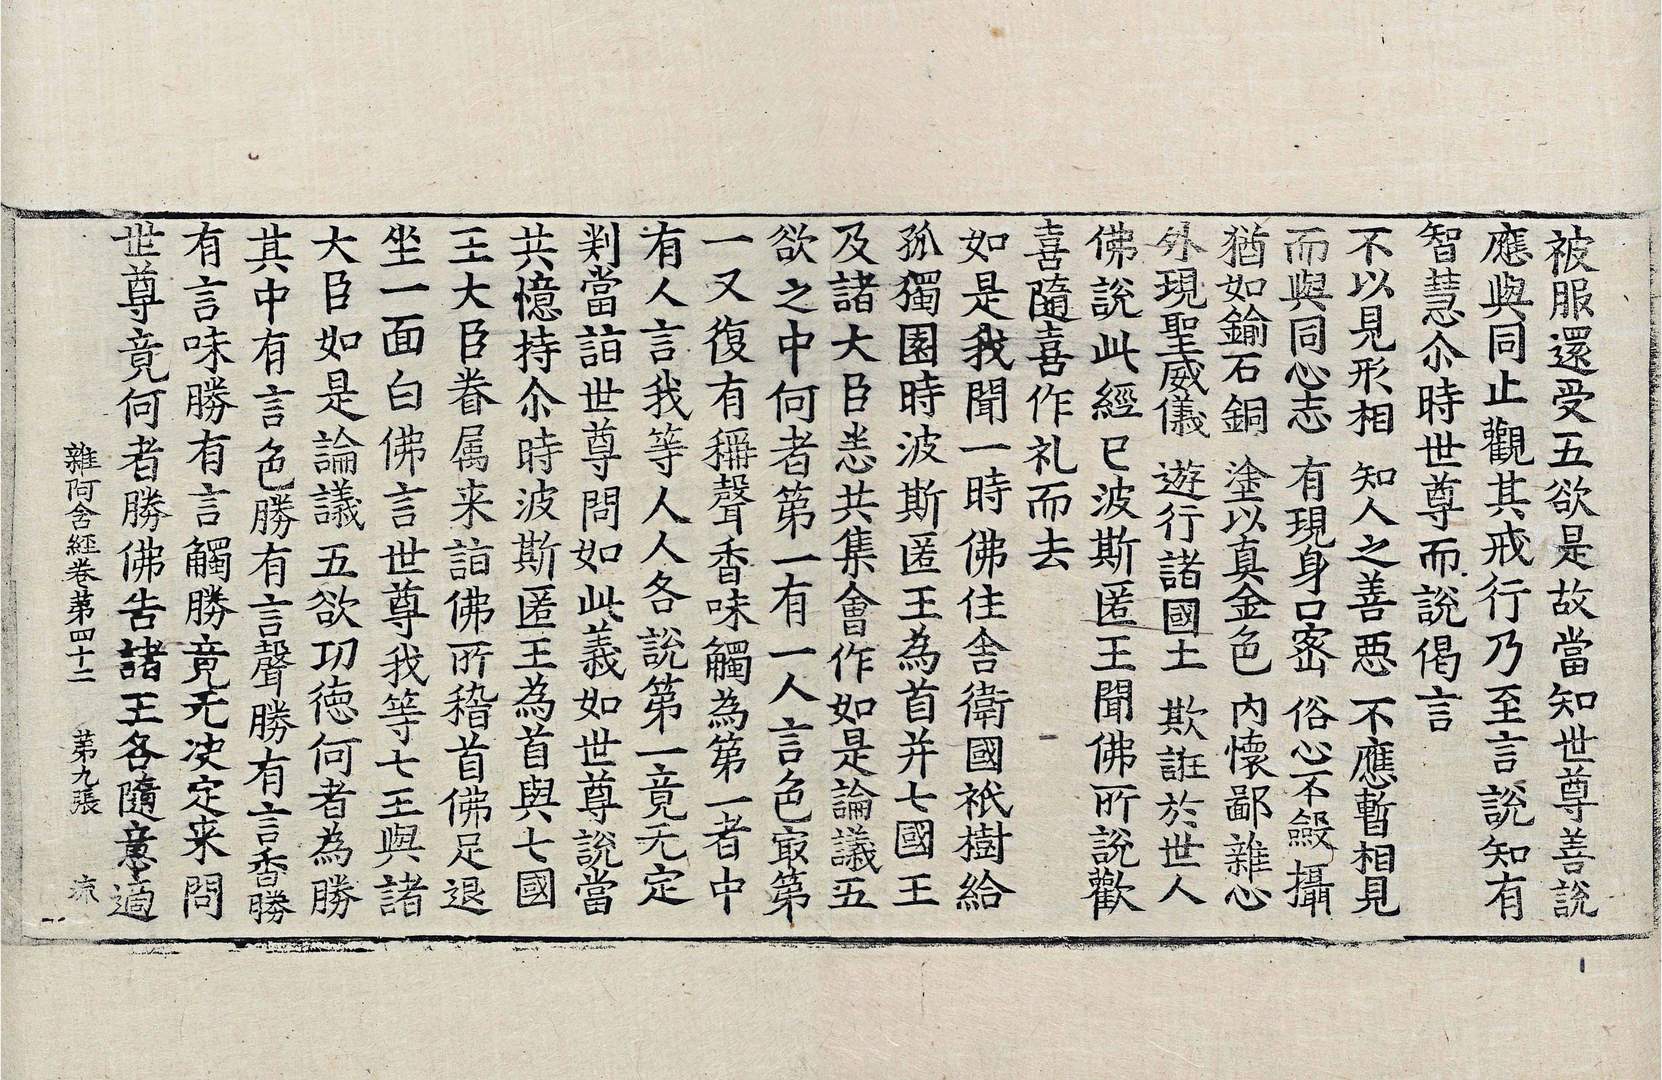 被服還受五欲是故當知世尊善說
應與同止觀其戒行乃至言說知有
智慧尒時世尊而說偈言
不以見形相 知人之善惡 不應暫相見
而與同心志 有現身口密 俗心不斂攝
猶如鍮石銅 塗以真金色 內懷鄙雜心
外現聖威儀 遊行諸國土 欺誑於世人
佛說此經已波斯匿王聞佛所說歡
喜隨喜作礼而去
如是我聞一時佛住舍衛國祇樹給
孤獨園時波斯匿王為首并七國王
及諸大臣悉共集會作如是論議五
欲之中何者第一有一人言色寂第
一又復有稱聲香味觸為第一者中
有人言我等人人各說第一竟无定
判當詣世尊問如此義如世尊說當
共憶持尒時波斯匿王為首與七國
王大臣眷属来詣佛所稽首佛足退
坐一面白佛言世尊我等七王與諸
大臣如是論議五欲功德何者為勝
其中有言色勝有言聲勝有言香勝
有言味勝有言觸勝竟无决定来問
世尊竟何者勝佛告諸王各隨意適
雜阿含經卷第四十二 第九張